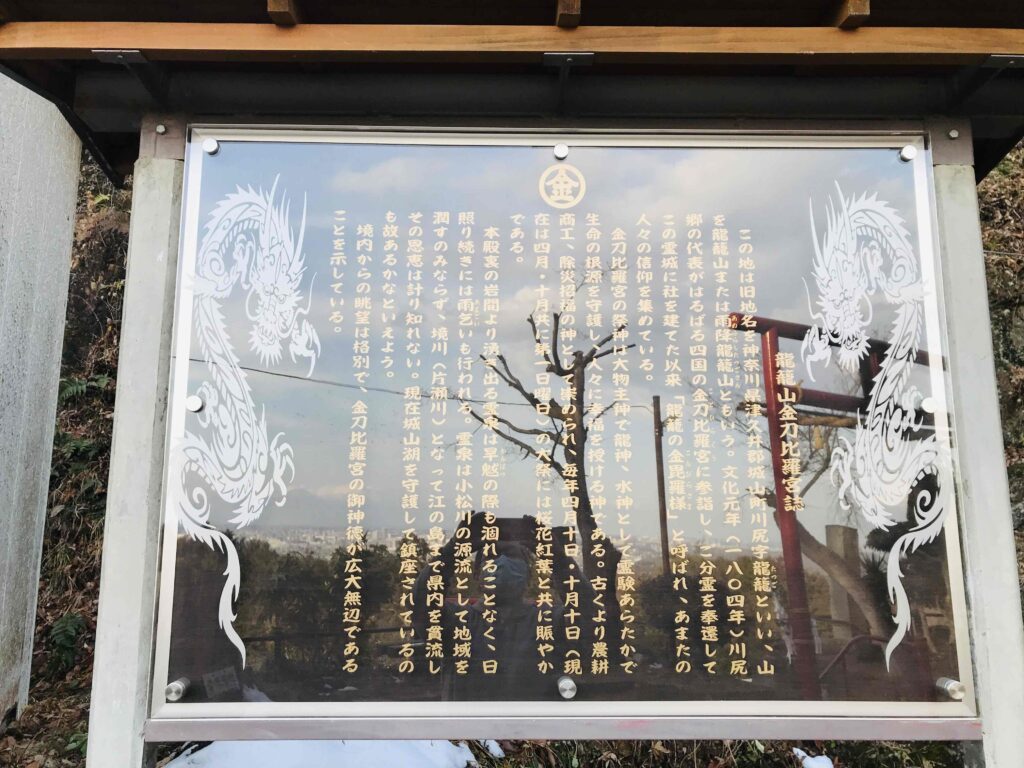 金
龍籠山金刀比羅宮誌
この地は旧地名を神奈川県津久井郡城山町川尻字龍籠といい、山
を龍籠山または雨降龍籠山ともいう。文化元年（一八〇四年）川尻
郷の代表がはるばる四国の金刀比羅宮に参詣し、ご分霊を奉遷して
この霊域に社を建てた以来「龍籠の金毘羅様」と呼ばれ、あまたの
人々の信仰を集めている。
金刀比羅宮の祭神は大物主神で龍神、水神として霊験あらたかで
生命の根源を守護し人々に幸福を授ける神である。古くより農耕
商工、除災招福の神として崇められ、毎年四月十日・十月十日（現
在は四月・十月共に第一日曜日）の大祭には桜花紅葉と共に賑やか
である。
本殿裏の岩間より湧き出る霊泉は旱魃の際も涸れることなく、日
照り続きには雨乞いも行われる。霊泉は小松川の源流として地域を
潤すのみならず、境川（片瀬川）となって江の島まで県内を貫流し
その恩恵は計り知れない。現在城山湖を守護して鎮座されているの
も故あるかなといえよう。
境内からの眺望は格別で、金刀比羅宮の御神徳が広大無辺である
ことを示している。